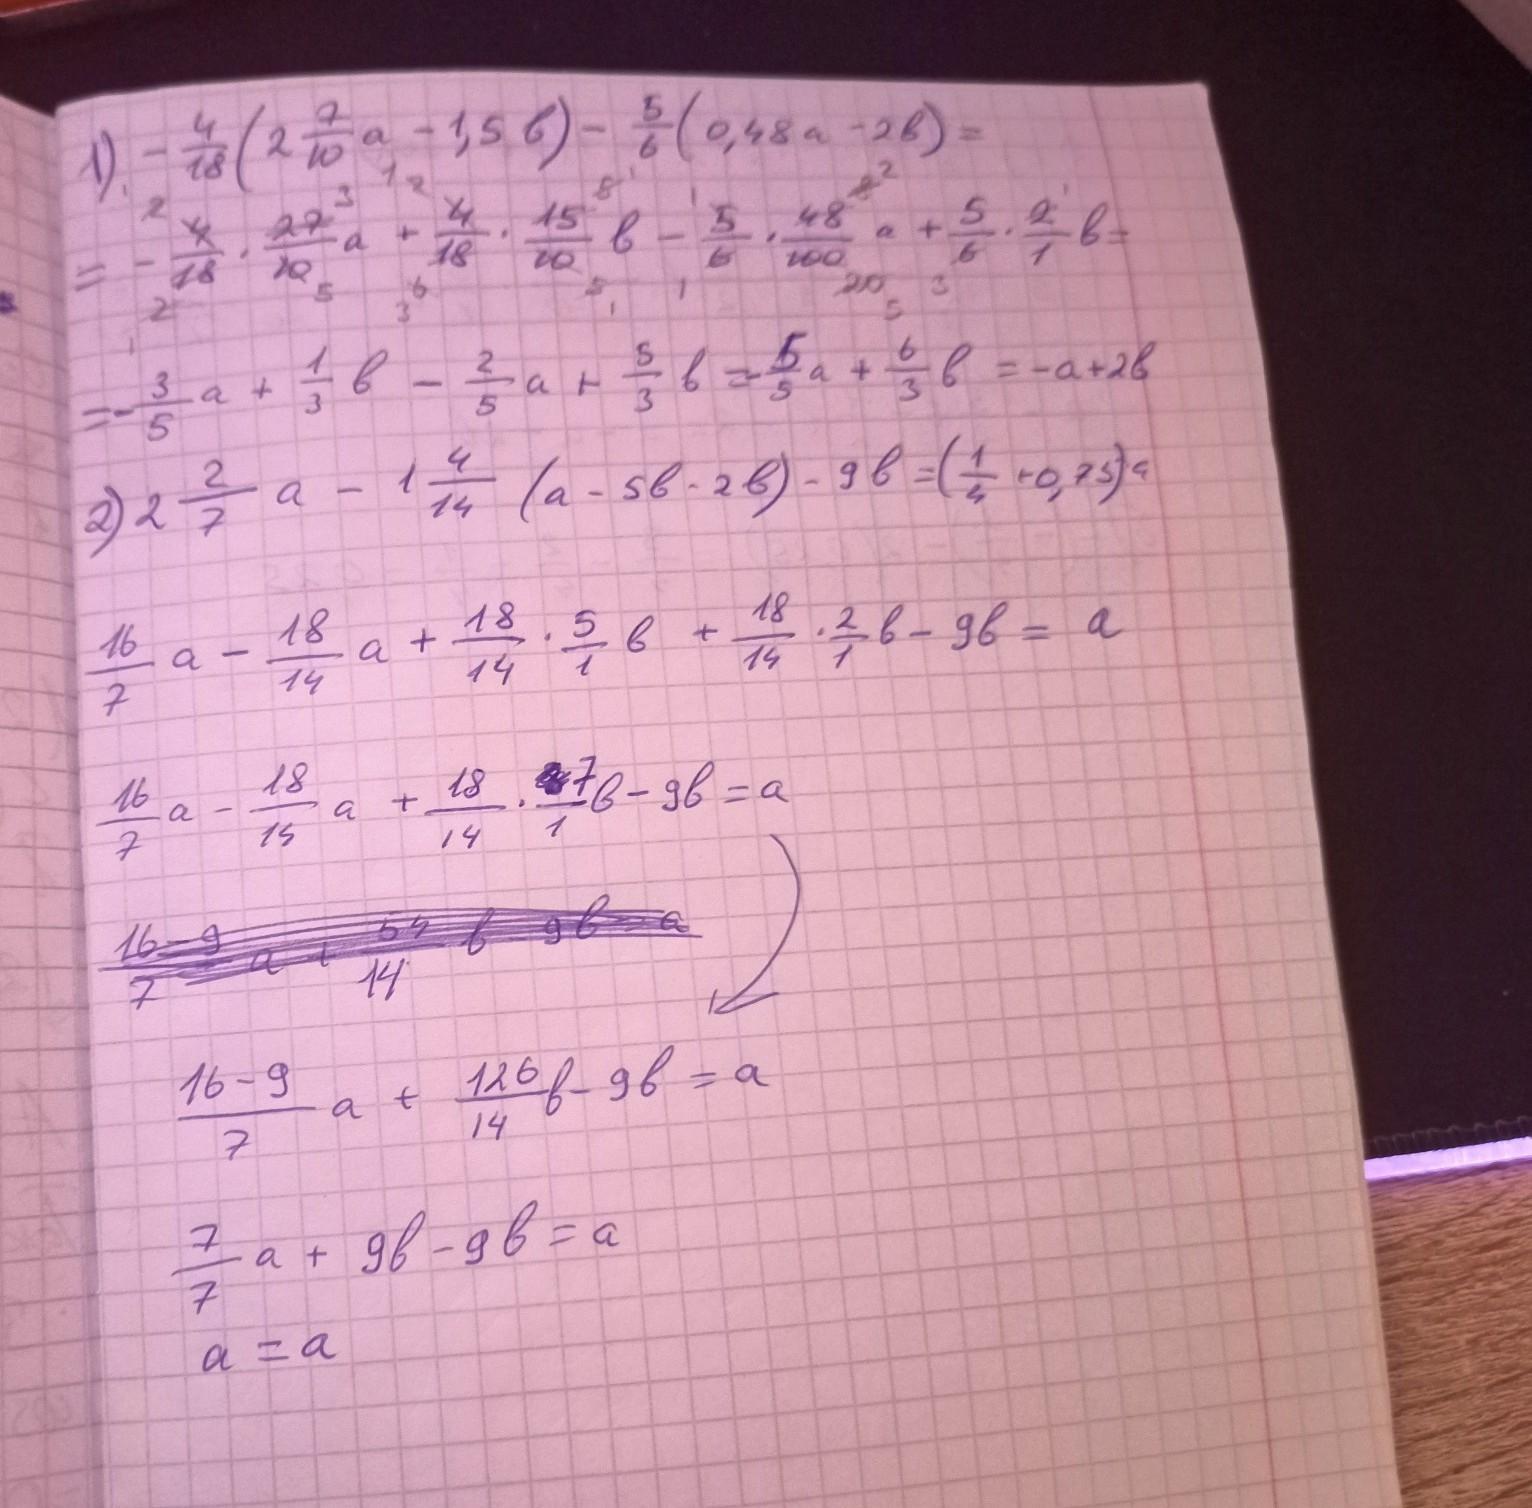 1). - 4/18 (2 7/10 a - 1,5 в) - 5/6 (0,48a - 2в) =
= - 4/18 · 27/10 a + 4/18 · 15/10 в - 5/6 · 48/100 a + 5/6 · 2/1 в =
= - 3/5 a + 1/3 в - 2/5 a + 5/3 в = - 5/5 a + 6/3 в = -a+2в
2) 2 2/7 a - 1 4/14 (a - 5в - 2в) - 9в = (1/4 + 0,75)a
16/7 a - 18/14 a + 18/14 · 5/1 в + 18/14 · 2/1 в - 9в = a
16/7 a - 18/14 a + 18/14 · 7/1 в - 9в = a
16-9/7 a + 54/14 в 9в = a
16-9/7 a + 126/14 в - 9в = a
7/7 a + 9в - 9в = a
a = a